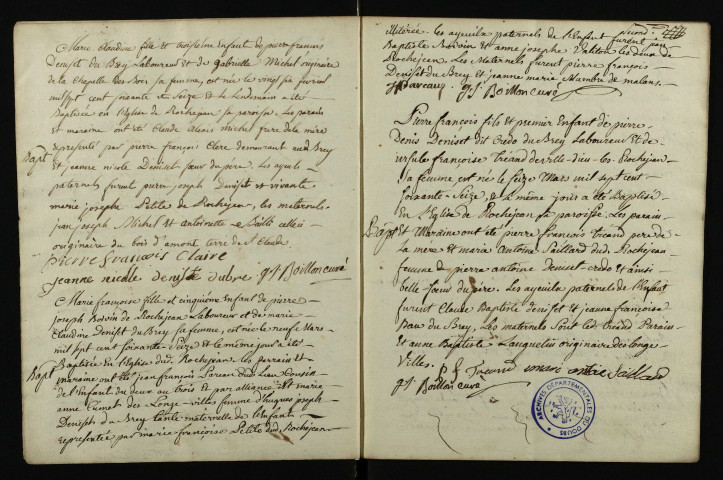 Marie claudine fille et troisième Enfant de pierre francois
Deniset du Brey Laboureur et de gabrielle Michel originaire
de la Chapelle des Bois sa femme, est née le vingt six fevrier
mil sept cent soixante et Seize et le Lendemain a été
Baptisée en l'Eglise de Rochejean sa paroisse. Les parain
et maraine ont été Claude Alexis Michel frere de la mère
representé par pierre françois Clerc demeurant aud Brey
Bapt
et jeanne nicole Deniset sœur du père. Les ayeuls
paternels furent pierre joseph Deniset et vivante
marie josephe Petite de Rochejean, les maternels
jean joseph Michel et antoinette Bailli celle ci
originaire du bois d'amont terre de St Claude
pierre françois Claire
jeanne nicole deniste dubre g. f. Boillon curé
Marie françoise fille et cinquième Enfant de pierre
joseph Bovin de Rochejean Laboureur et de marie
Claudine Deniset du Brey sa femme, est née le neuf Mars
mil sept cent soixante-Seize et le même jour a été
Baptisée en l'Eglise dud. Rochejean. les parrain et
Bapt
maraine ont été jean françois Loreau dud. Lieu Cousin
de l'Enfant du deux au trois et par alliance et marie
anne Cumet des Longe-villes femme d'hugues joseph
Deniset du Brey tante maternelle de l'Enfant
representée par marie-françoise Petite dud. Rochejean
illiterée. les ayeuls paternels de l'Enfant furent
Baptiste Bovin et anne josephe Valiton les deux de
Rochejean. Les Maternels furent pierre françois
Deniset du Brey et jeanne marie Mambre de malans.
g. f. Boillon curé
Pierre françois fils et premier Enfant de pierre
Denis Deniset dit Credo du Brey Laboureur et de
ursule françoise treand de ville-dieu-les-Rochejean
sa femme est né le Seize Mars mil sept cent
soixante-Seize, et le même jour a été Baptisé
En l'Eglise de Rochejean sa paroisse. Les parain
Bapt
et Maraine ont été pierre françois treand pere de
la mère et marie Antoine Saillard dud. Rochejean
femme de pierre antoine Deniset credo et ainsi
belle sœur du père. Les ayeuls paternels de l'Enfant
furent Claude Baptiste deniset et jeanne françoise
du Brey. Les maternels Sont led. treand Parain
et anne Baptiste Lanquetin originaire des longe-
villes.
p f Treand marie antoine Saillard
g. f. Boillon curé
ARCHIVES DÉPARTEMENTALES DU DOUBS